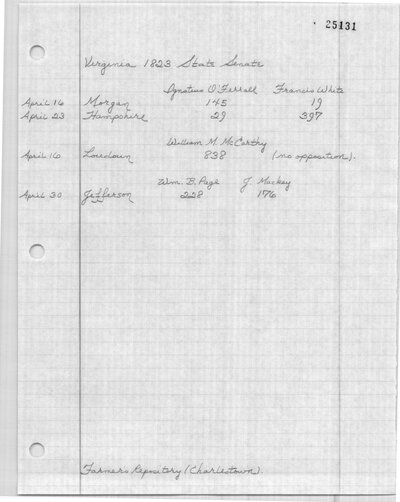 25131
Virginia 1823 State Senate
Ignatius O'Ferrall Francis White
April 16 Morgan 145 19
April 23 Hampshire 29 397
William M. McCarthy
April 16 Loudoun 838 (no opposition).
Wm. B. Page J. Mackey
April 30 Jefferson 228 176
Farmers Repository (Charlestown)